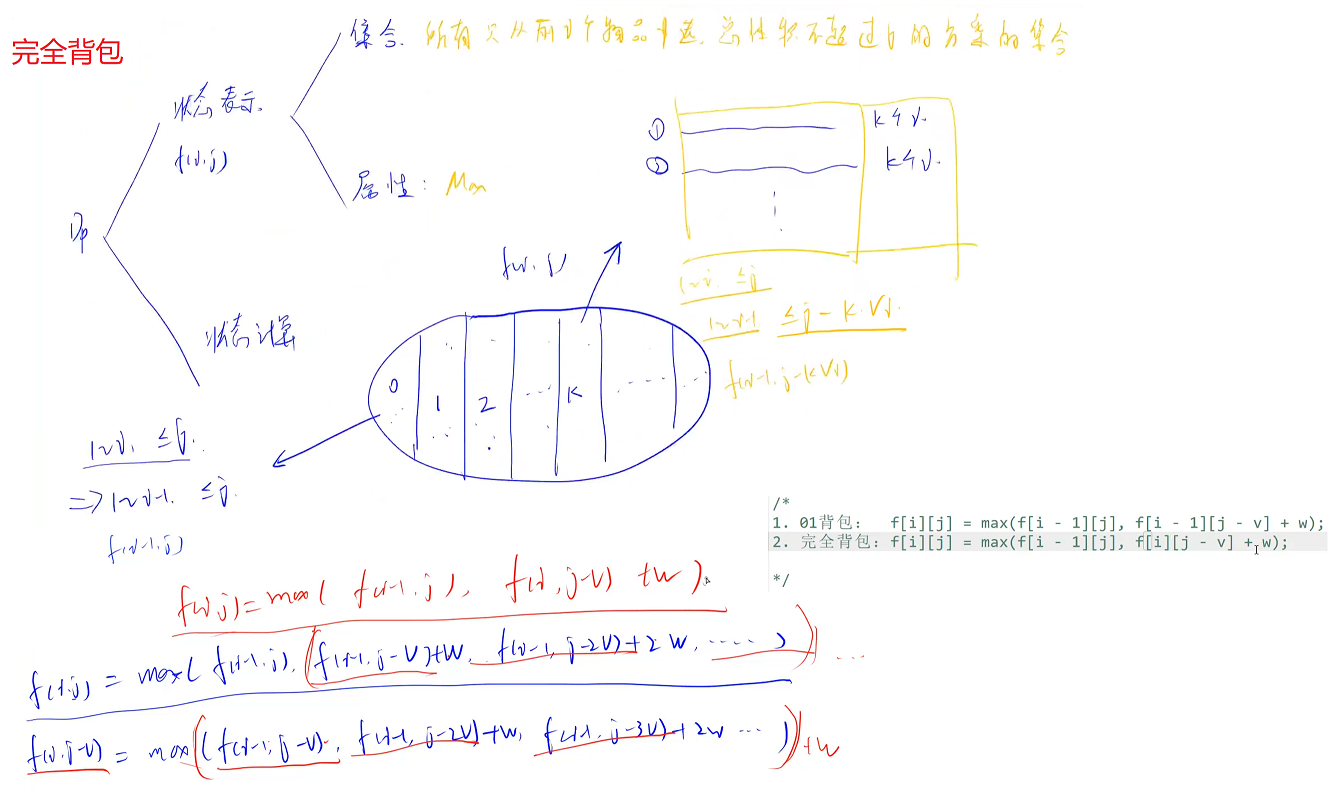 完全背包
集合. 所有只从前i个物品中选, 总体积不超过j的方案的集合
状态表示.
f(i,j)
属性: Max
Dp
状态计算
① k个i.
② k个i.
f(i, j)
0 1 2 ... k ......
1~i. ≤j
1~i-1 ≤j-k·Vi.
f(i-1, j-kVi)
1~i. ≤j.
=> 1~i-1. ≤j.
f(i-1,j)
/*
1. 01背包: f[i][j] = max(f[i - 1][j], f[i - 1][j - v] + w);
2. 完全背包: f[i][j] = max(f[i - 1][j], f[i][j - v] + w);
*/
f(i,j)=max( f(i-1,j), f(i,j-v) +w).
f(i,j) = max( f(i-1,j), f(i-1,j-v)+w, f(i-1,j-2v)+2w, ..... ) ...
f(i,j-v) = max( f(i-1,j-v), f(i-1,j-2v)+w, f(i-1,j-3v)+2w ... ) +w